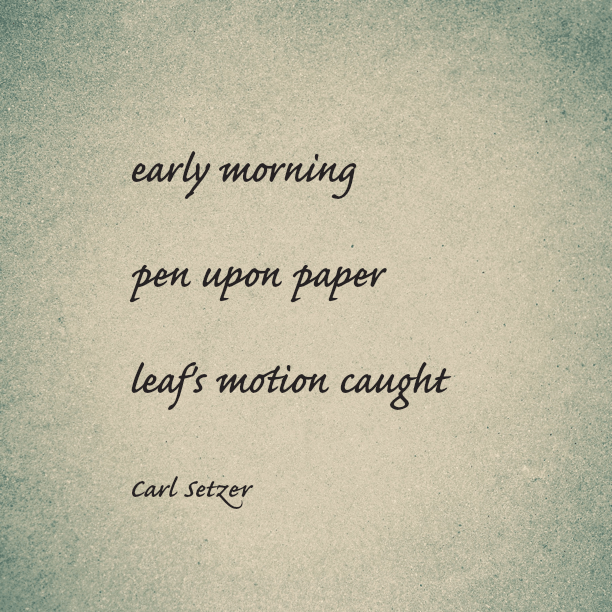 early morning
pen upon paper
leaf's motion caught
Carl Setzer